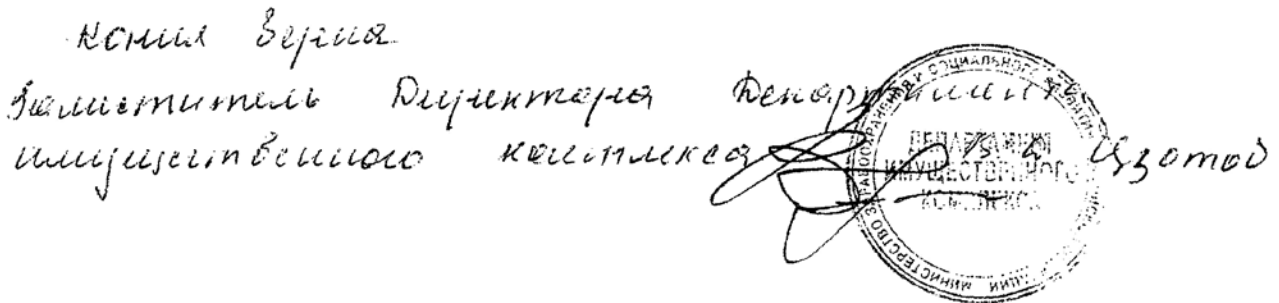 Копия верна
Заместитель Директора Департамента
имущественного комплекса
МИНИСТЕРСТВО ЗДРАВООХРАНЕНИЯ И СОЦИАЛЬНОГО РАЗВИТИЯ
ДЕПАРТАМЕНТ
ИМУЩЕСТВЕННОГО
КОМПЛЕКСА